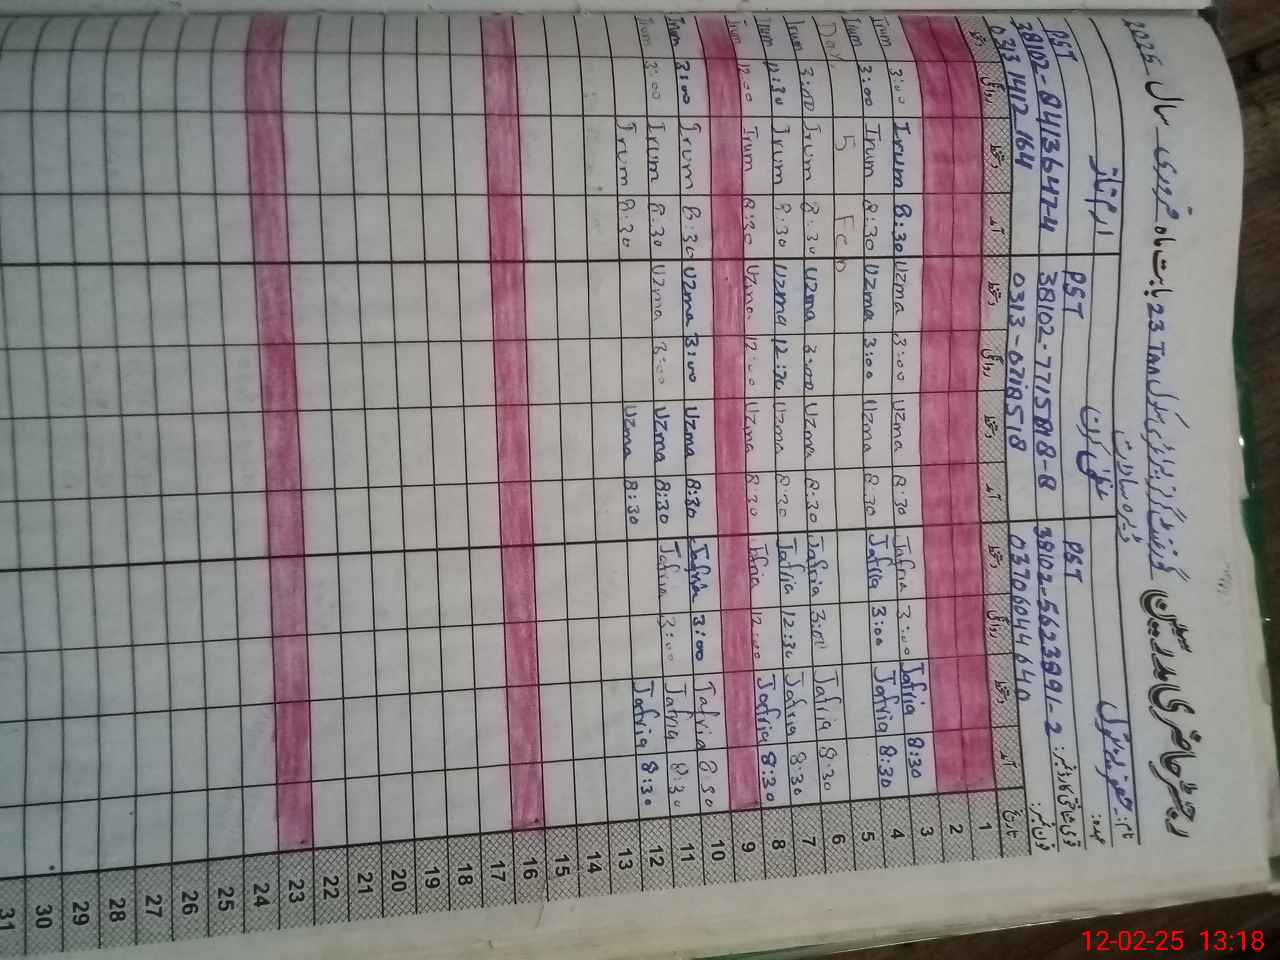 رجسٹر حاضری مدرسین گورنمنٹ گرلز پرائمری سکول 23 TDA بابت ماہ فروری سال 2025
نام:
عہدہ: PST PST PST
قومی شناختی کارڈ نمبر: 38102-5623891-2 38102-8413647-4
فون نمبر: 03706044640 0313-0718518 03131412164
تاریخ آمد دستخط روانگی دستخط آمد دستخط روانگی دستخط آمد دستخط روانگی دستخط
1
2
3 8:30 Jafria 3:00 Jafria 8:30 Uzma 3:00 Uzma 8:30 Irum 3:00 Irum
4 8:30 Jafria 3:00 Jafria 8:30 Uzma 3:00 Uzma 8:30 Irum 3:00 Irum
5 5 Feb Day
6 8:30 Jafria 3:00 Jafria 8:30 Uzma 3:00 Uzma 8:30 Irum 3:00 Irum
7 8:30 Jafria 12:30 Jafria 8:30 Uzma 12:30 Uzma 8:30 Irum 12:30 Irum
8 8:30 Jafria 12:00 Jafria 8:30 Uzma 12:00 Uzma 8:30 Irum 12:00 Irum
9
10 8:30 Jafria 3:00 Jafria 8:30 Uzma 3:00 Uzma 8:30 Irum 3:00 Irum
11 8:30 Jafria 3:00 Jafria 8:30 Uzma 3:00 Uzma 8:30 Irum 3:00 Irum
12 8:30 Jafria 8:30 Uzma 8:30 Irum
13
14
15
16
17
18
19
20
21
22
23
24
25
26
27
28
29
30
31
12-02-25 13:18